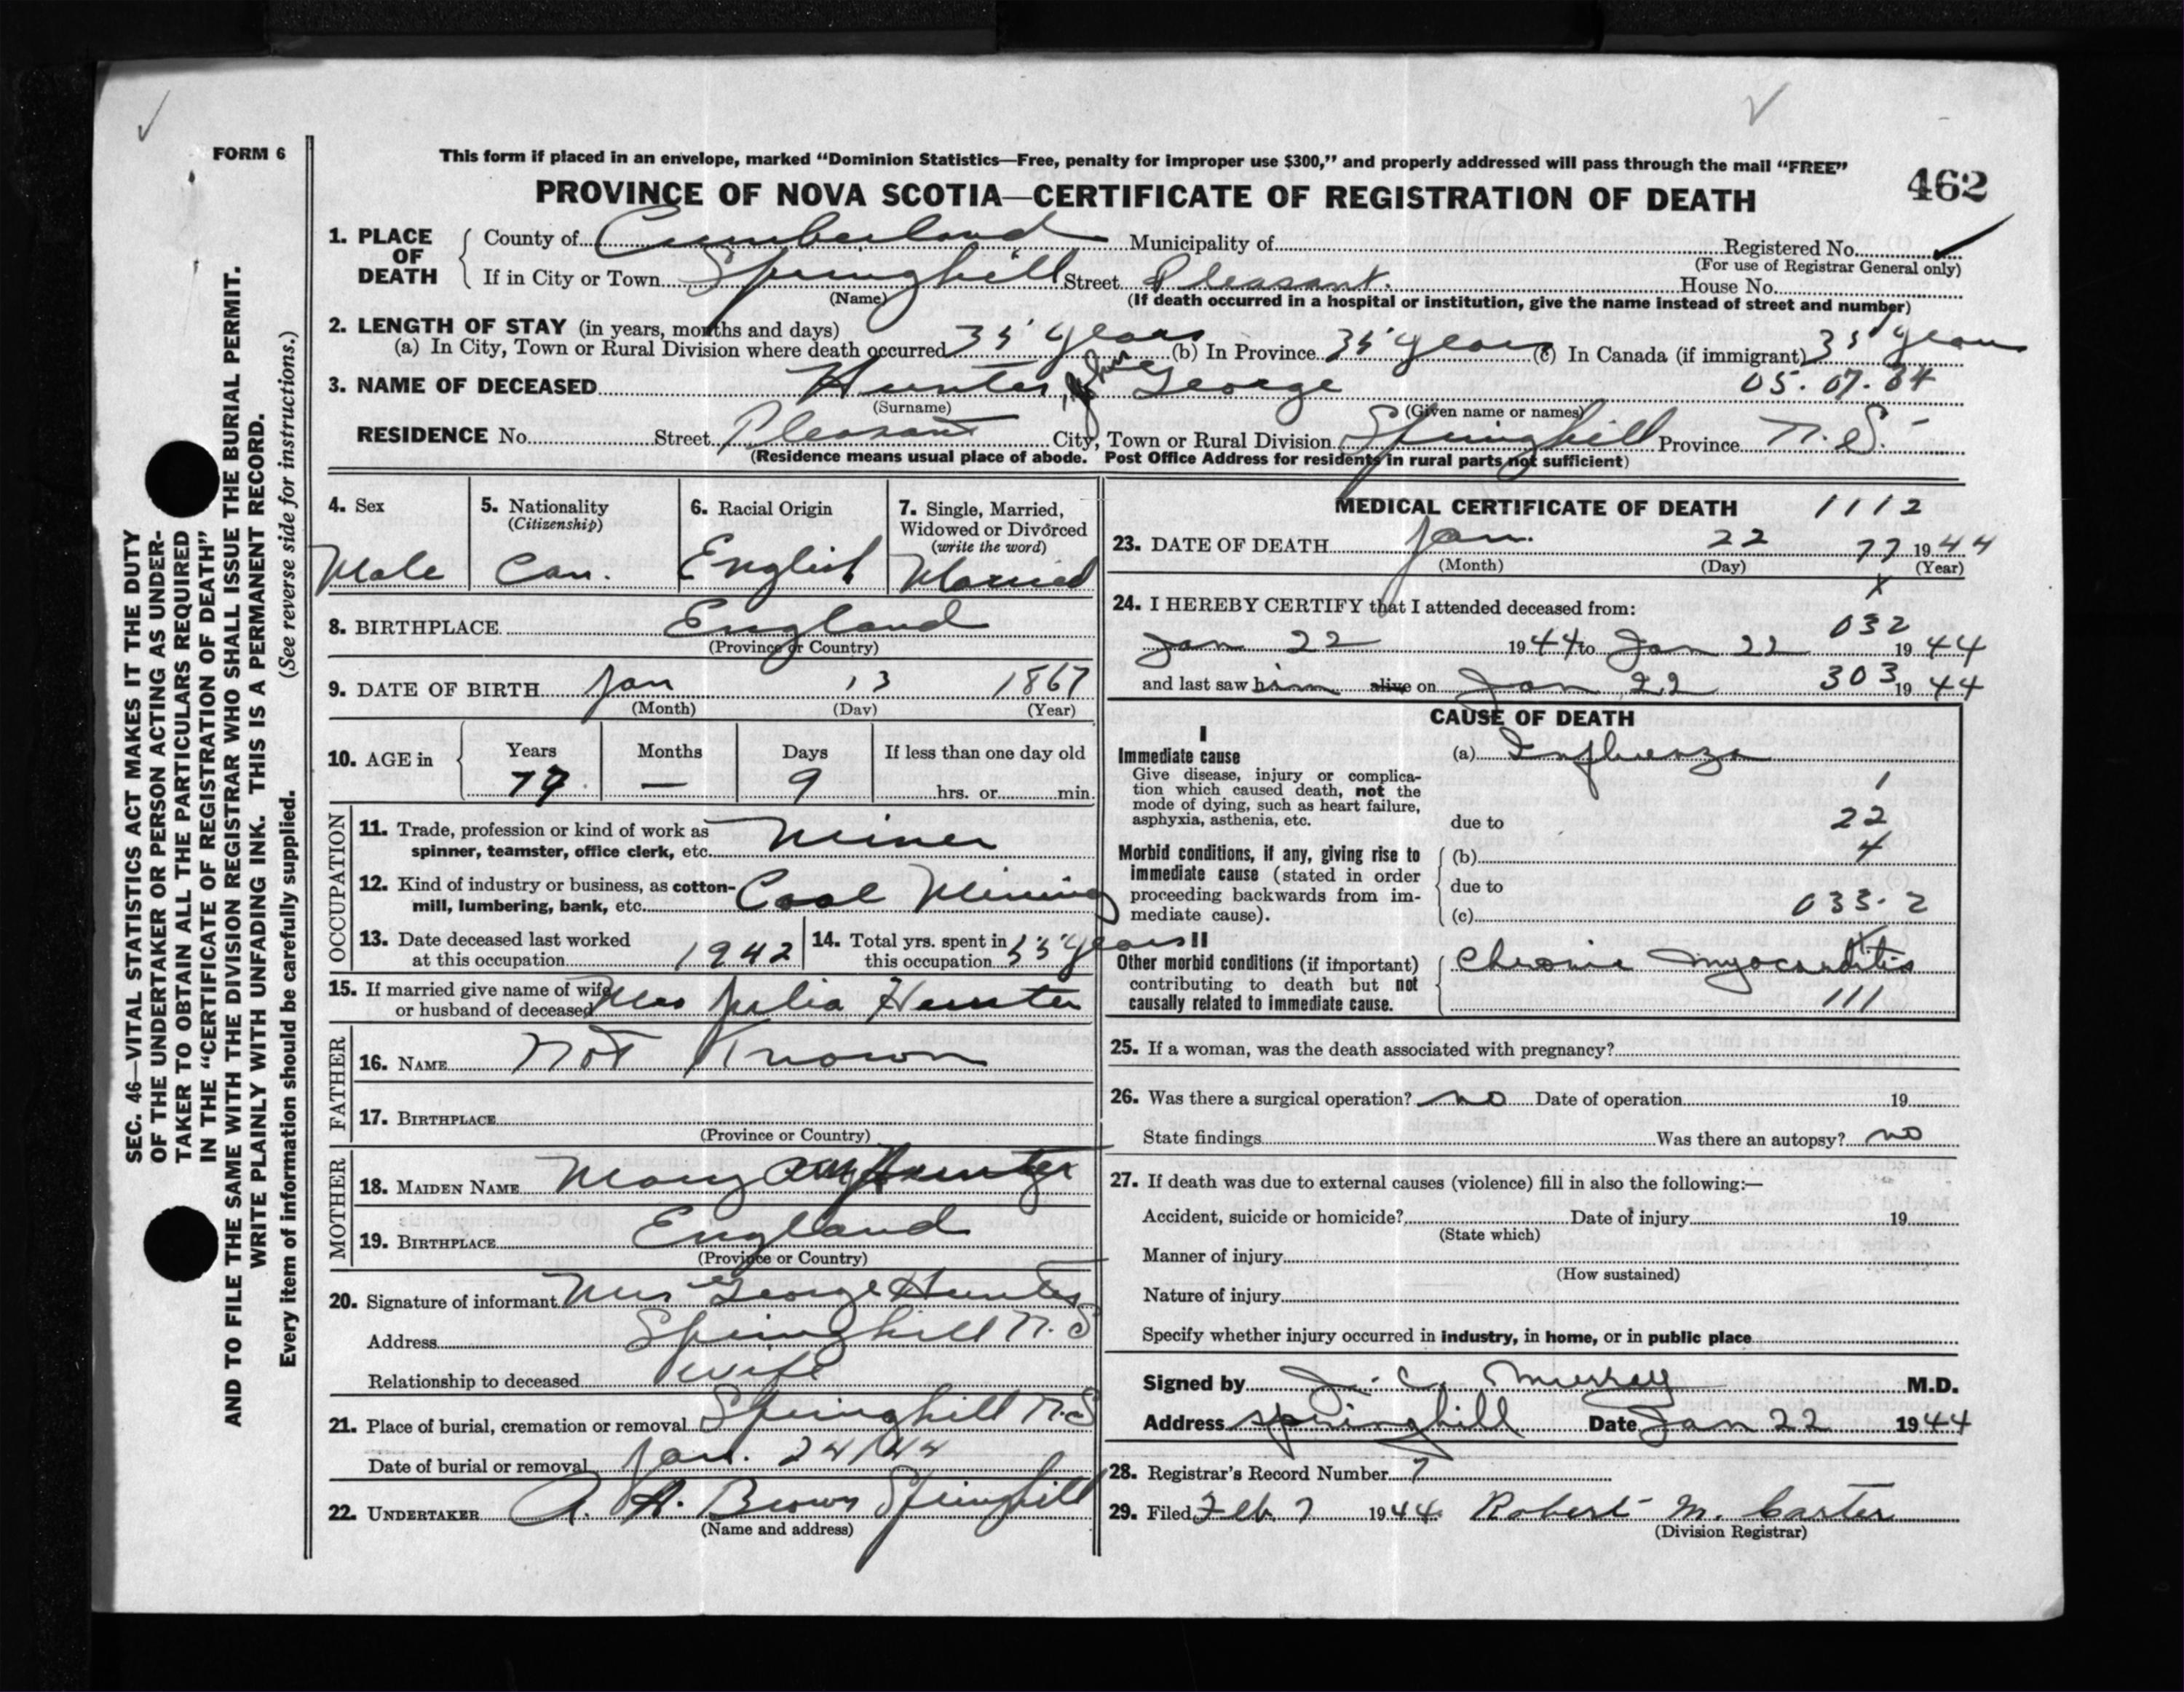 FORM 6
This form if placed in an envelope, marked “Dominion Statistics—Free, penalty for improper use $300,” and properly addressed will pass through the mail “FREE”
PROVINCE OF NOVA SCOTIA—CERTIFICATE OF REGISTRATION OF DEATH
462
1. PLACE OF DEATH
County of Cumberland Municipality of Registered No.
(For use of Registrar General only)
If in City or Town Springhill Street Pleasant. House No.
(Name)
(If death occurred in a hospital or institution, give the name instead of street and number)
2. LENGTH OF STAY (in years, months and days)
(a) In City, Town or Rural Division where death occurred 35 years (b) In Province 35 years (c) In Canada (if immigrant) 35 years
3. NAME OF DECEASED Hunter, John George 05.07.84
(Surname) (Given name or names)
RESIDENCE No. Street Pleasant City, Town or Rural Division Springhill Province N.S.
(Residence means usual place of abode. Post Office Address for residents in rural parts not sufficient)
4. Sex
Male
5. Nationality
(Citizenship)
Can.
6. Racial Origin
English
7. Single, Married,
Widowed or Divorced
(write the word)
Married
8. BIRTHPLACE England
(Province or Country)
9. DATE OF BIRTH Jan 13 1867
(Month) (Day) (Year)
10. AGE in Years Months Days If less than one day old
77 — 9 hrs. or min.
OCCUPATION
11. Trade, profession or kind of work as
spinner, teamster, office clerk, etc. Miner
12. Kind of industry or business, as cotton-
mill, lumbering, bank, etc. Coal Mining
13. Date deceased last worked
at this occupation 1942
14. Total yrs. spent in
this occupation 35 years
15. If married give name of wife
or husband of deceased Mrs Julia Hunter
FATHER
16. NAME Not Known
17. BIRTHPLACE
(Province or Country)
MOTHER
18. MAIDEN NAME Mary Hunter
19. BIRTHPLACE England
(Province or Country)
20. Signature of informant Mrs George Hunter
Address Springhill N.S
Relationship to deceased wife
21. Place of burial, cremation or removal Springhill N.S
Date of burial or removal Jan. 24/44
22. UNDERTAKER A. H. Brown Springhill
(Name and address)
MEDICAL CERTIFICATE OF DEATH 1112
23. DATE OF DEATH Jan. 22 77 1944
(Month) (Day) (Year)
X
24. I HEREBY CERTIFY that I attended deceased from:
032
Jan 22 1944 to Jan 22 1944
and last saw him alive on Jan 22 303 1944
CAUSE OF DEATH
I
Immediate cause
(a) Influenza
Give disease, injury or complica-
tion which caused death, not the
mode of dying, such as heart failure,
asphyxia, asthenia, etc.
1
due to 22
4
Morbid conditions, if any, giving rise to
immediate cause (stated in order
proceeding backwards from im-
mediate cause).
(b)
due to
(c) 033.2
II
Other morbid conditions (if important)
contributing to death but not
causally related to immediate cause.
Chronic myocarditis
111
25. If a woman, was the death associated with pregnancy?
26. Was there a surgical operation? no Date of operation 19
State findings Was there an autopsy? no
27. If death was due to external causes (violence) fill in also the following:—
Accident, suicide or homicide? Date of injury 19
(State which)
Manner of injury
(How sustained)
Nature of injury
Specify whether injury occurred in industry, in home, or in public place
Signed by J. C. Murray M.D.
Address Springhill Date Jan 22 1944
28. Registrar's Record Number 7
29. Filed Feb. 7 1944 Robert M. Carter
(Division Registrar)
SEC. 46—VITAL STATISTICS ACT MAKES IT THE DUTY
OF THE UNDERTAKER OR PERSON ACTING AS UNDER-
TAKER TO OBTAIN ALL THE PARTICULARS REQUIRED
IN THE “CERTIFICATE OF REGISTRATION OF DEATH”
AND TO FILE THE SAME WITH THE DIVISION REGISTRAR WHO SHALL ISSUE THE BURIAL PERMIT.
WRITE PLAINLY WITH UNFADING INK. THIS IS A PERMANENT RECORD.
Every item of information should be carefully supplied. (See reverse side for instructions.)